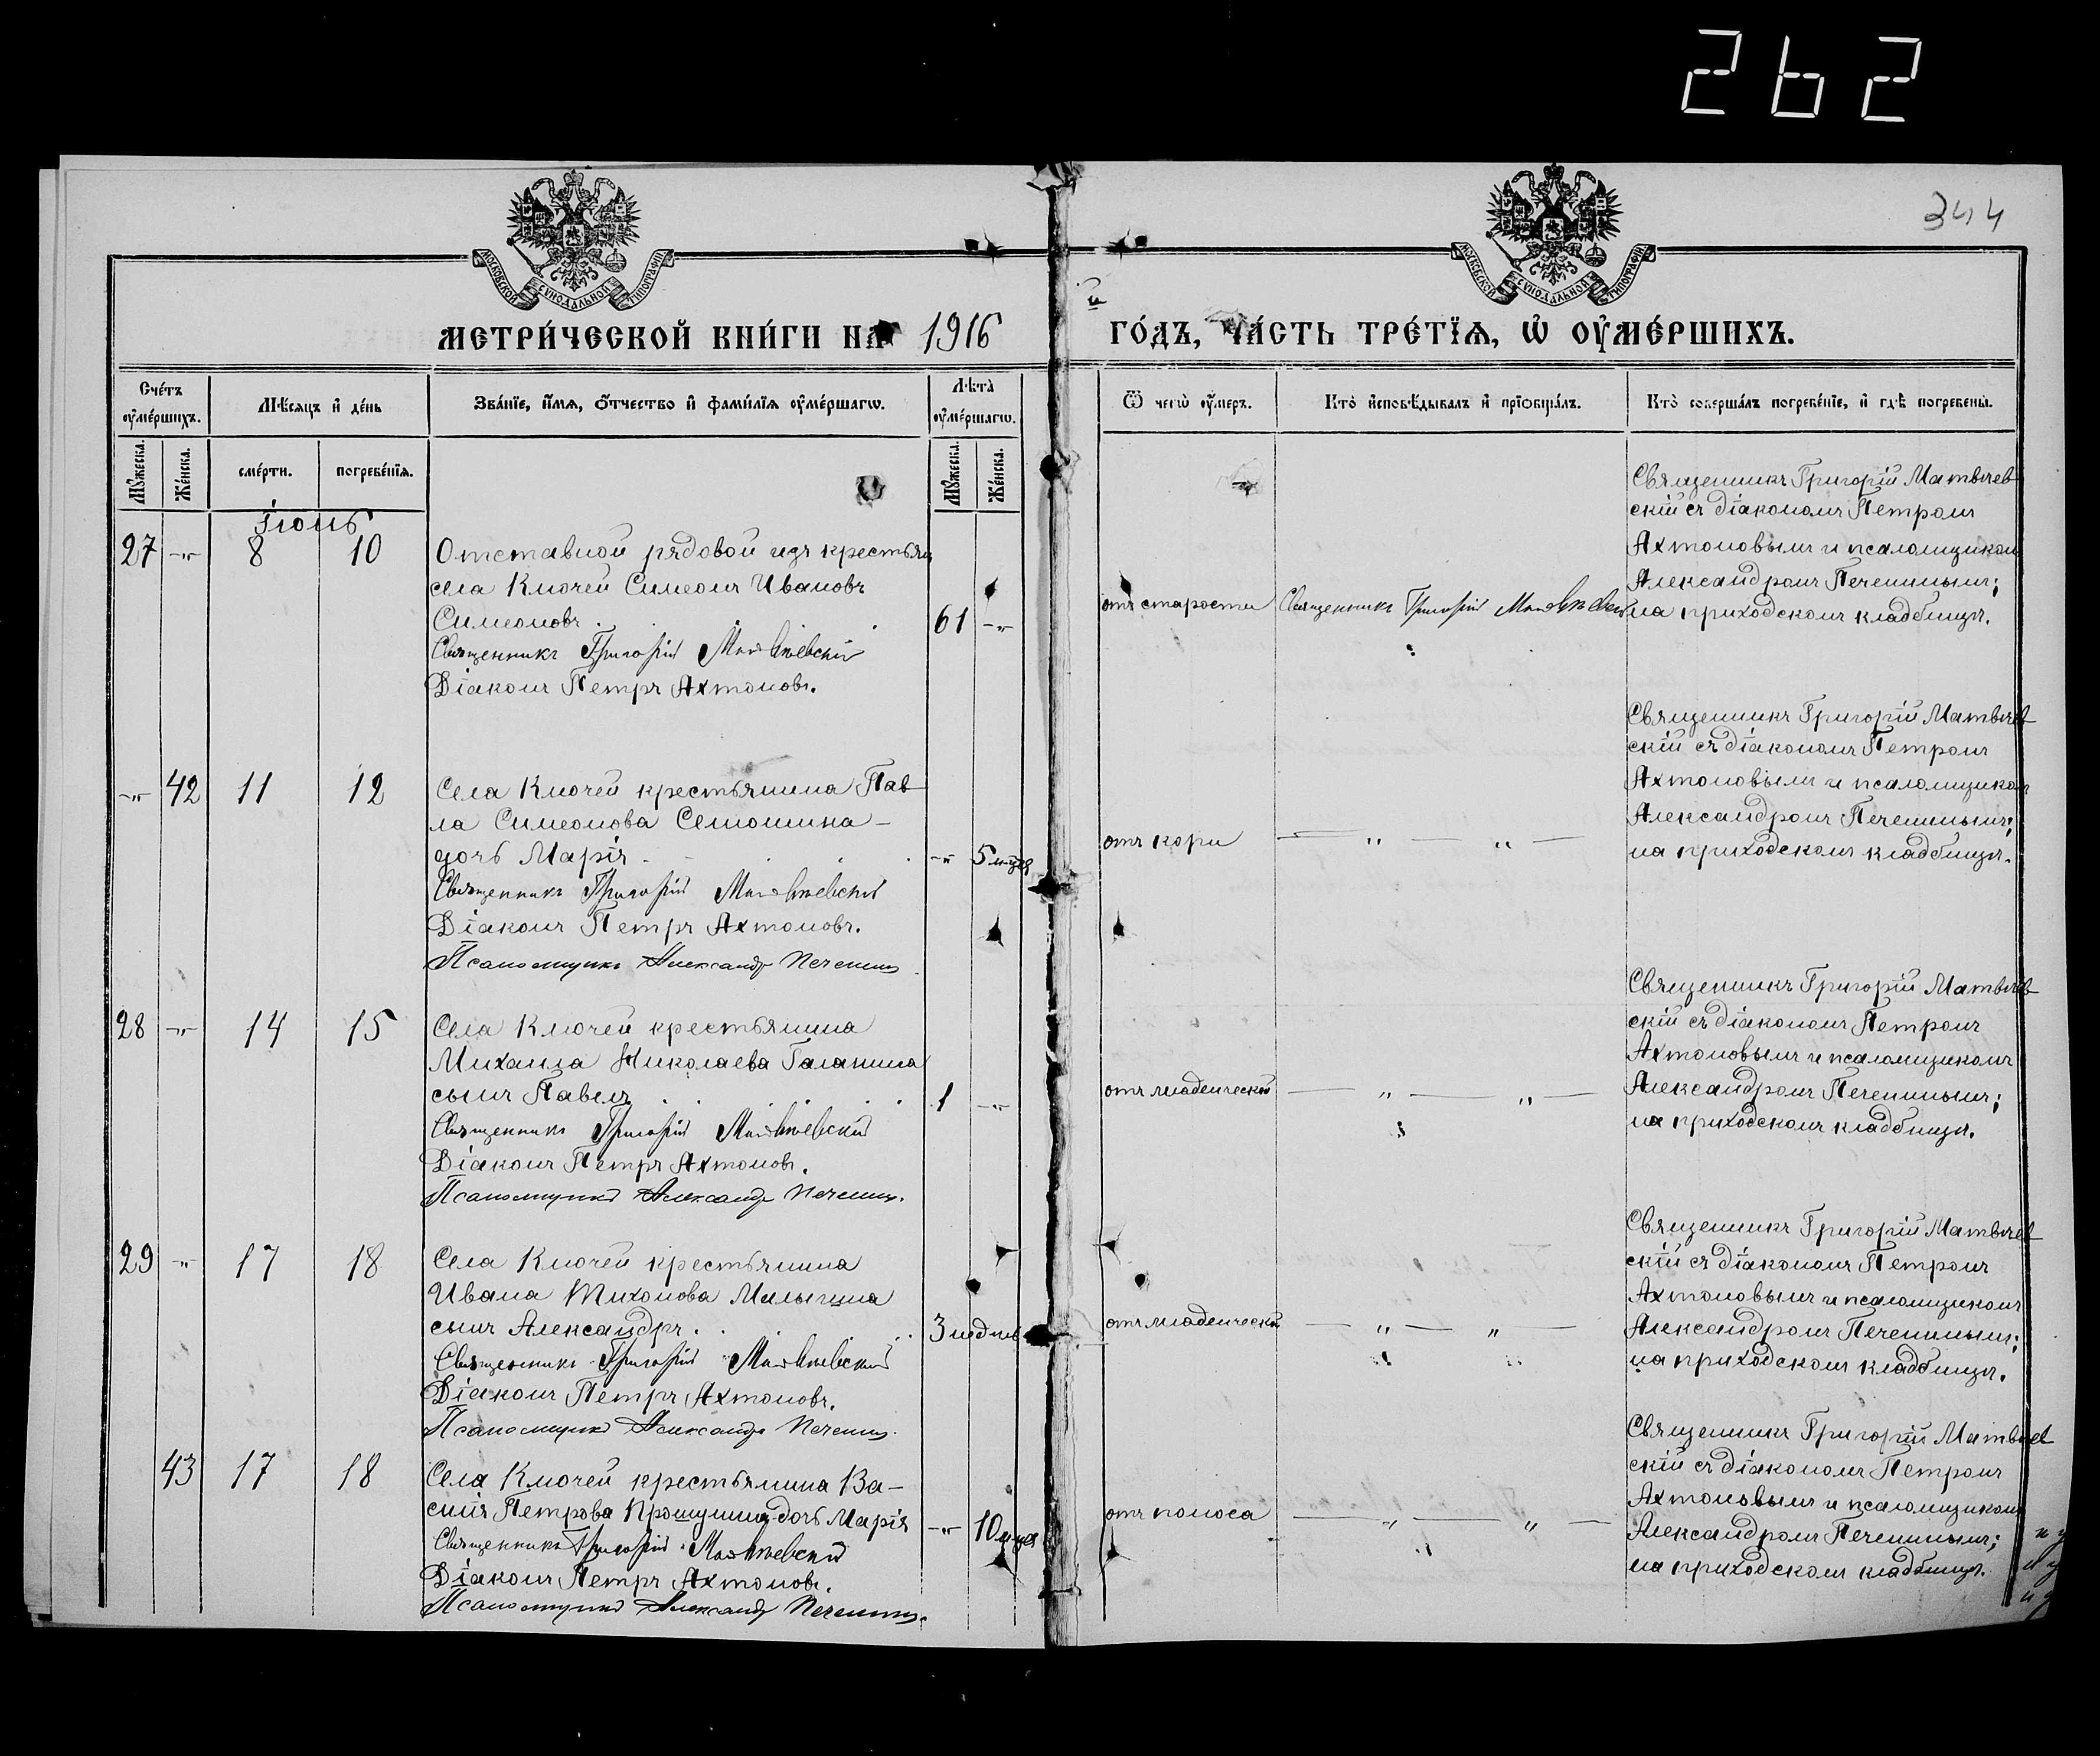 262
344
МОСКОВСКОЙ СѴНОДАЛЬНОЙ ТИПОГРАФІИ
МОСКОВСКОЙ СѴНОДАЛЬНОЙ ТИПОГРАФІИ
МЕТРИ́ЧЕСКОЙ КНИ́ГИ НА 1916 й ГО́ДЪ, ЧА́СТЬ ТРЕ́ТЇѦ, Ѡ҆ ОУ҆МЕ́РШИХЪ.
Сче́тъ оу҆ме́ршихъ.
Мѣ́сѧцъ и҆ де́нь
Зва́нїе, и҆́мѧ, ѻ҆́тчество и҆ фами́лїѧ оу҆ме́ршагѡ.
Лѣ́та оу҆ме́ршагѡ.
Ѿ чегѡ̀ оу҆́меръ.
Кто̀ и҆сповѣ́дывалъ и҆ прїѡбща́лъ.
Кто̀ соверша́лъ погребе́нїе, и҆ гдѣ̀ погребены̀.
Мꙋ́жеска.
Же́нска.
сме́рти.
погребе́нїѧ.
Мꙋ́жеска.
Же́нска.
Іюнь
27 -"- 8 10
Отставной рядовой изъ крестьян
села Ключей Симеонъ Ивановъ
Симеоновъ . 61 -"-
Священникъ Григорій Матвѣевскій
Діаконъ Петръ Ахтоновъ.
отъ старости
Священникъ Григорій Матвѣевскій
Священникъ Григорій Матвѣев
скій съ діакономъ Петромъ
Ахтоновымъ и псаломщиком
Александромъ Печенинымъ;
на приходскомъ кладбищѣ.
-"- 42 11 12
Села Ключей крестьянина Пав
ла Симеонова Семошина -
дочь Марія . -"- 5 мцея
Священникъ Григорій Матвѣевскій
Діаконъ Петръ Ахтоновъ.
Псаломщикъ Александръ Печенинъ
отъ кори
— " — " —
Священникъ Григорій Матвѣев
скій съ діакономъ Петромъ
Ахтоновымъ и псаломщиком
Александромъ Печенинымъ;
на приходскомъ кладбищѣ.
28 -"- 14 15
Села Ключей крестьянина
Михаила Николаева Галанина
сынъ Павелъ . 1 -"-
Священникъ Григорій Матвѣевскій
Діаконъ Петръ Ахтоновъ.
Псаломщикъ Александръ Печенинъ.
отъ младенческой
— " — " —
Священникъ Григорій Матвѣев
скій съ діакономъ Петромъ
Ахтоновымъ и псаломщикомъ
Александромъ Печенинымъ;
на приходскомъ кладбищѣ.
29 -"- 17 18
Села Ключей крестьянина
Ивана Тихонова Малыгина
сынъ Александръ . 3 недѣль
Священникъ Григорій Матвѣевскій
Діаконъ Петръ Ахтоновъ.
Псаломщикъ Александръ Печенинъ.
отъ младенческой
— " — " —
Священникъ Григорій Матвѣев
скій съ діакономъ Петромъ
Ахтоновымъ и псаломщикомъ
Александромъ Печенинымъ;
на приходскомъ кладбищѣ.
43 17 18
Села Ключей крестьянина Ва-
силія Петрова Прошунина дочь Марія -"- 10 мцея
Священникъ Григорій Матвѣевскій
Діаконъ Петръ Ахтоновъ.
Псаломщикъ Александръ Печенинъ.
отъ поноса
— " — " —
Священникъ Григорій Матвѣев
скій съ діакономъ Петромъ
Ахтоновымъ и псаломщикомъ
Александромъ Печенинымъ;
на приходскомъ кладбищѣ.